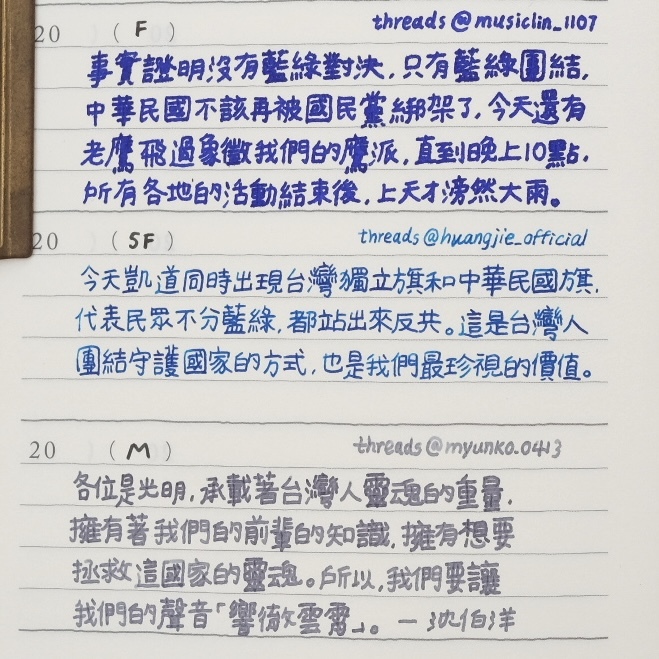 20 ( F ) threads@musiclin_1107
事實證明沒有藍綠對決，只有藍綠團結，
中華民國不該再被國民黨綁架了，今天還有
老鷹飛過象徵我們的鷹派，直到晚上10點，
所有各地的活動結束後，上天才滂然大雨。
20 ( SF ) threads@huangjie_official
今天凱道同時出現台灣獨立旗和中華民國旗，
代表民眾不分藍綠，都站出來反共。這是台灣人
團結守護國家的方式，也是我們最珍視的價值。
20 ( M ) threads@myunko_0413
各位是光明，承載著台灣人靈魂的重量，
擁有著我們的前輩的知識，擁有想要
拯救這國家的靈魂。所以，我們要讓
我們的聲音「響徹雲霄」。—沈伯洋